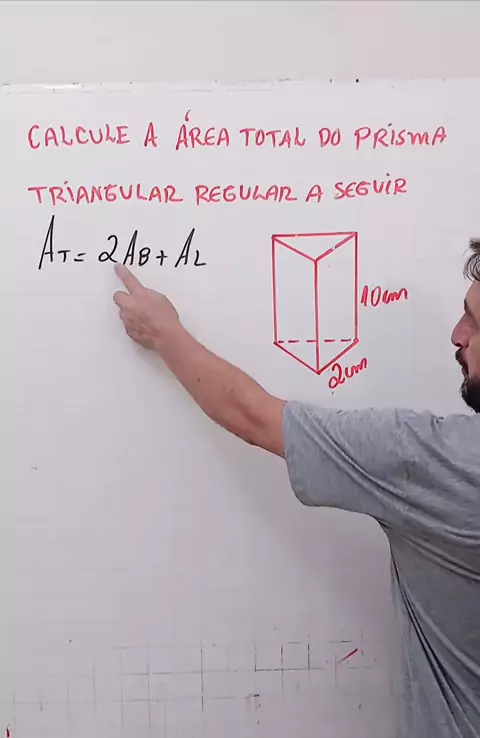 CALCULE A ÁREA TOTAL DO PRISMA
TRIANGULAR REGULAR A SEGUIR
AT = 2AB + AL
10cm
2cm